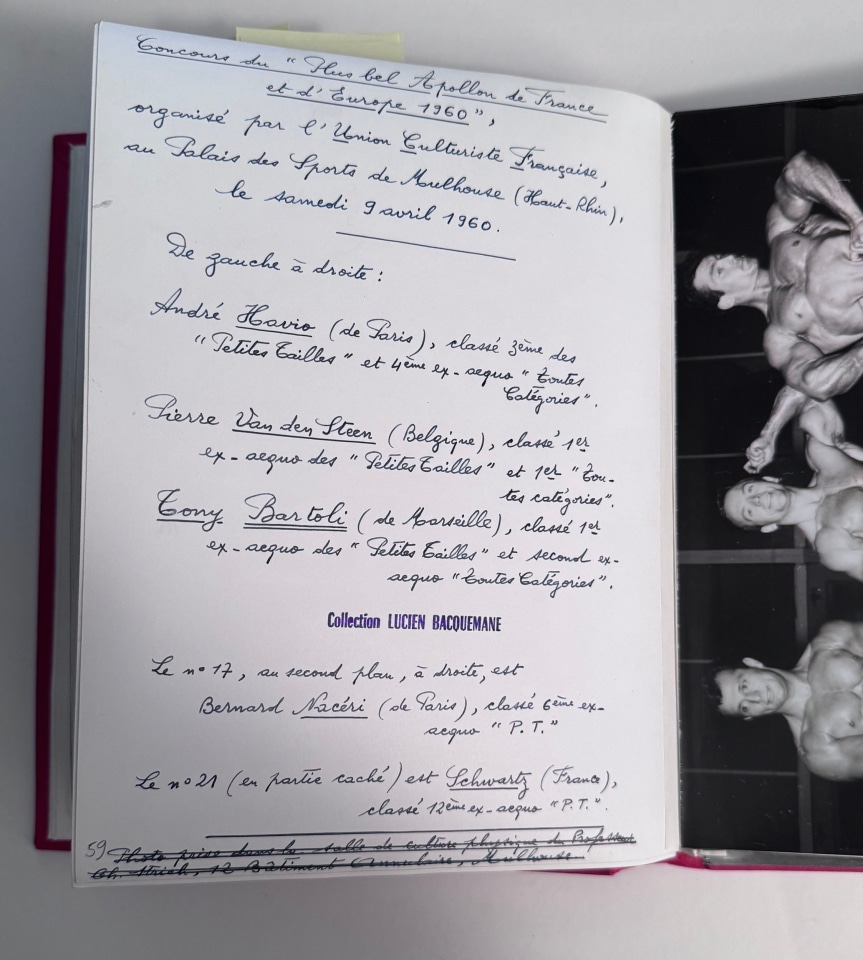 Concours du "Plus bel Apollon de France
et d'Europe 1960",
organisé par l'Union Culturiste Française,
au Palais des Sports de Mulhouse (Haut-Rhin),
le samedi 9 avril 1960.
De gauche à droite :
André Havio (de Paris), classé 3ème des
"Petites Tailles" et 4ème ex-aequo "Toutes
Catégories".
Pierre Van den Steen (Belgique), classé 1er
ex-aequo des "Petites Tailles" et 1er "Tou-
tes catégories".
Tony Bartoli (de Marseille), classé 1er
ex-aequo des "Petites Tailles" et second ex-
aequo "Toutes Catégories".
Collection LUCIEN BACQUEMANE
Le n° 17, au second plan, à droite, est
Bernard Nacéri (de Paris), classé 6ème ex-
aequo "P.T."
Le n° 21 (en partie caché) est Schwartz (France),
classé 12ème ex-aequo "P.T".
59 Photo prise dans la salle de culture physique du Professeur
Ch. 12 Bâtiment Annulaire, Mulhouse.